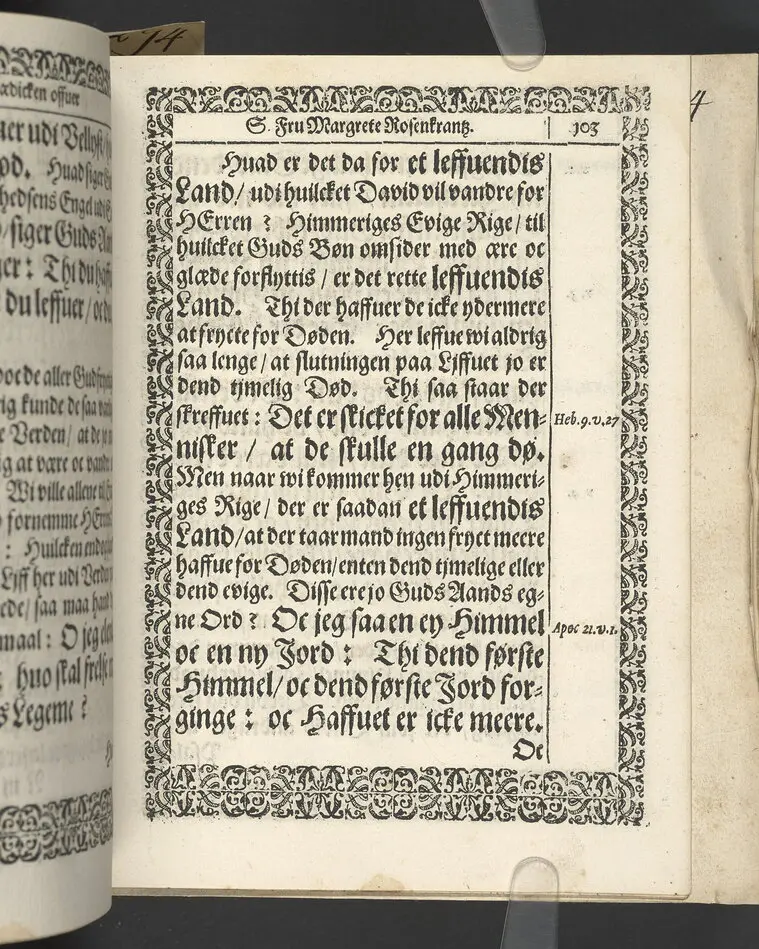 74
ædicken offuer
uer udi Vellyst/
ød. Huad siger
hedsens Engel udi
/siger Guds
er: Thi du haff
du leffuer/oc du
oc de aller Gudfryct
rig kunde de saa
e Verden/ at de
g at være oc vandr
Wi ville allene
fornemme HErr
: Huilcken
Liff her udi Verde
ede/ saa maa hand
maal: O jeg
huo skal frelse
s Legeme?
S. Fru Margrete Rosenkrantz. 103
Huad er det da for et leffuendis
Land/ udi huilcket David vil vandre for
HErren? Himmeriges Evige Rige/ til
huilcket Guds Bøn omsider med ære oc
glæde forflyttis/ er det rette leffuendis
Land. Thi der haffuer de icke ydermere
at frycte for Døden. Her leffue wi aldrig
saa lenge/ at slutningen paa Liffuet jo er
dend tjmelig Død. Thi saa staar der
skreffuet: Det er skicket for alle Men-
Heb.9.v.27
nisker/ at de skulle en gang dø.
Men naar wi kommer hen udi Himmeri-
ges Rige/ der er saadan et leffuendis
Land/at der taar mand ingen fryct meere
haffue for Døden/enten dend tjmelige eller
dend evige. Disse ere jo Guds Aands eg-
ne Ord? Oc jeg saa en ny Himmel
Apoc 21.v.1.
oc en ny Jord: Thi dend første
Himmel/oc dend første Jord for-
ginge: oc Haffuet er icke meere.
Oc
4